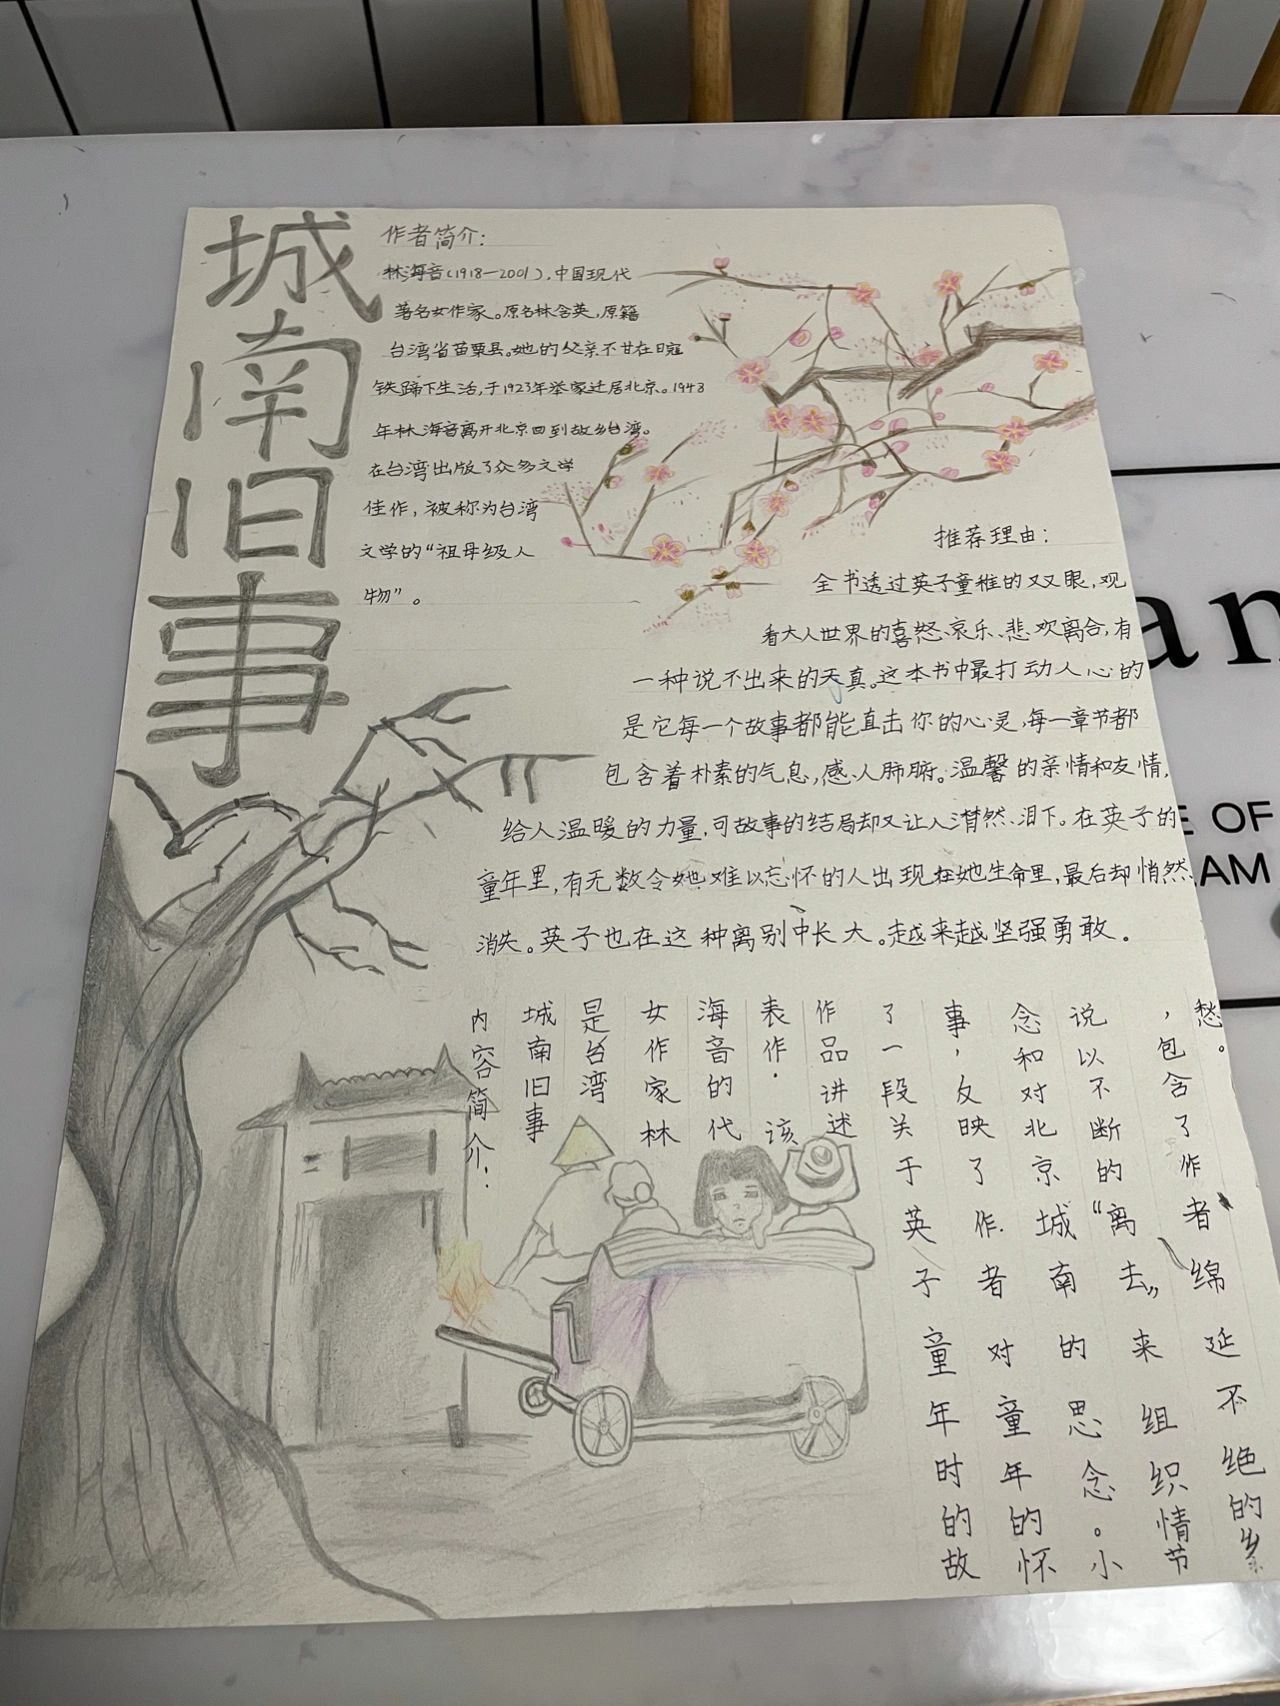 城南旧事
作者简介:
林海音(1918—2001),中国现代
著名女作家。原名林含英,原籍
台湾省苗栗县。她的父亲不甘在日寇
铁蹄下生活,于1923年举家迁居北京。1948
年林海音离开北京回到故乡台湾。
在台湾出版了众多文学
佳作,被称为台湾
文学的“祖母级人
物”。
推荐理由:
全书透过英子童稚的双眼,观
看大人世界的喜怒、哀乐、悲欢离合,有
一种说不出来的天真。这本书中最打动人心的
是它每一个故事都能直击你的心灵,每一章节都
包含着朴素的气息,感人肺腑。温馨的亲情和友情,
给人温暖的力量,可故事的结局却又让人潸然泪下。在英子的
童年里,有无数令她难以忘怀的人出现在她生命里,最后却悄然
消失。英子也在这种离别中长大。越来越坚强勇敢。
内容简介:
城南旧事
是台湾
女作家林
海音的代
表作.该
作品讲述
了一段关于英子童年时的故
事,反映了作者对童年的怀
念和对北京城南的思念。小
说以不断的“离去”来组织情节
,包含了作者绵延不绝的乡
愁。
an
E OF
AM